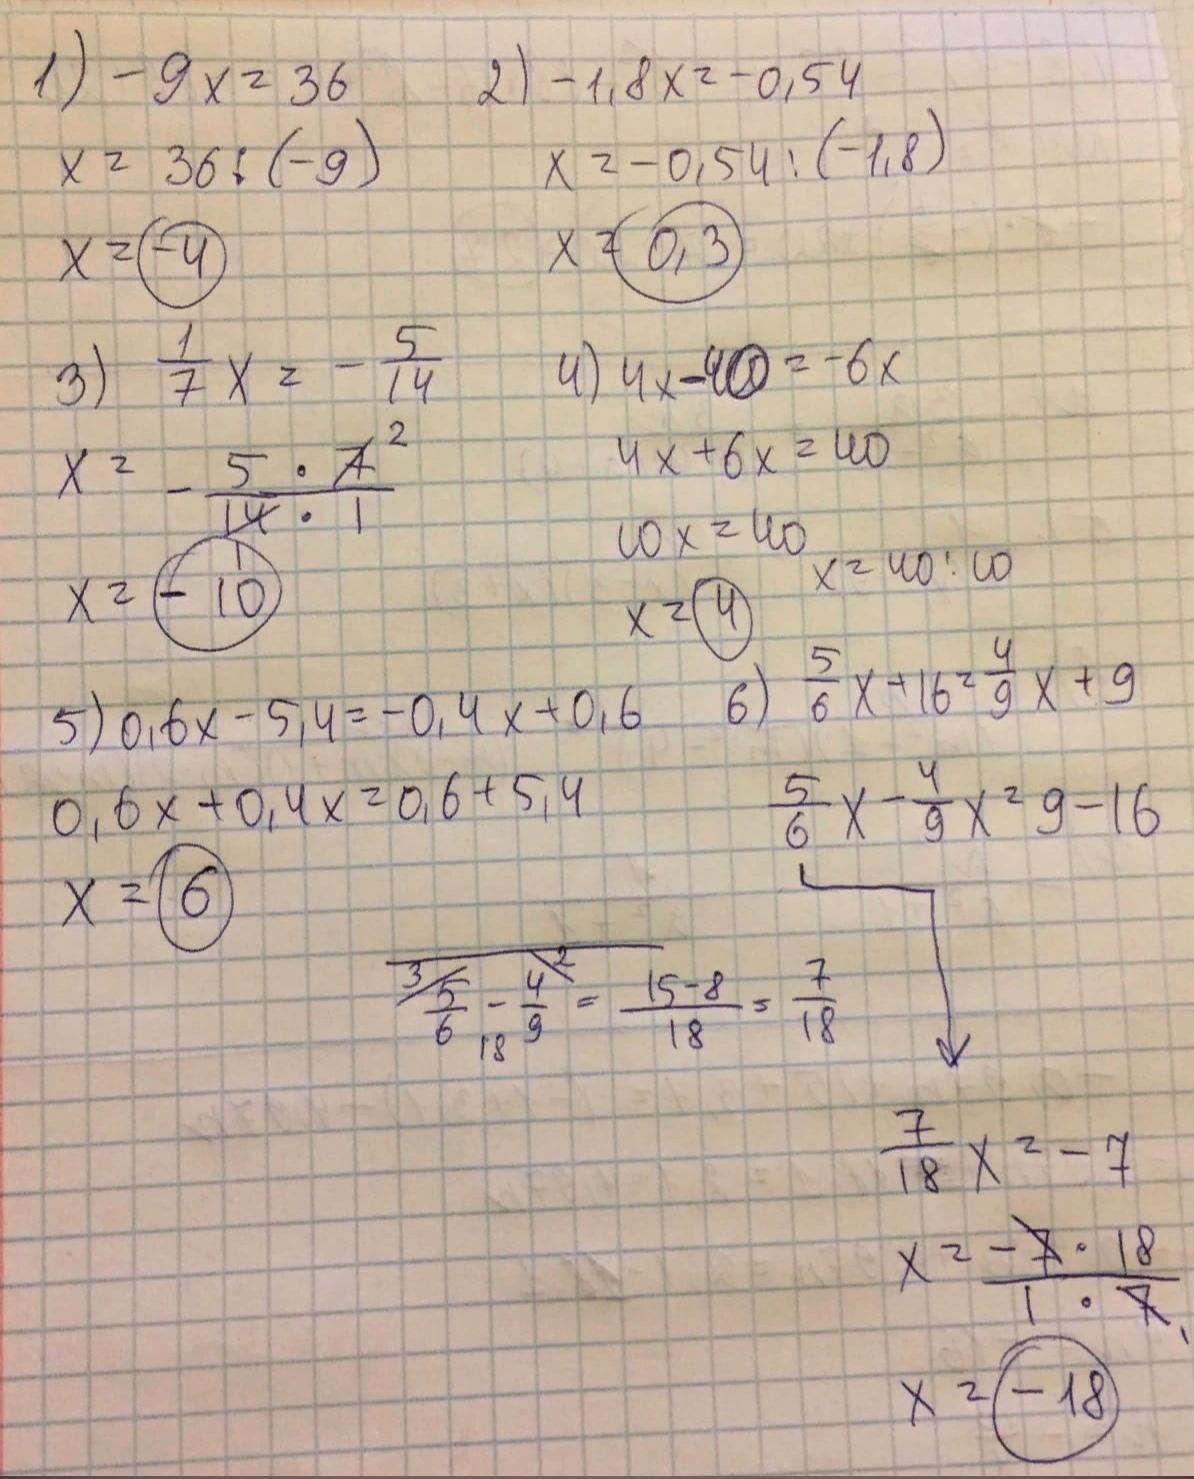 1) -9x=36
x = 36:(-9)
x = -4
2) -1,8x=-0,54
x=-0,54:(-1,8)
x = 0,3
3) 1/7 x = - 5/14
x = - (5 · 7 2)/(14 · 1)
1
x = -10
4) 4x-40=-6x
4x+6x=40
10x=40
x=40:10
x=4
5) 0,6x-5,4=-0,4x+0,6
0,6x+0,4x=0,6+5,4
x = 6
6) 5/6 x+16=4/9 x+9
5/6 x - 4/9 x = 9-16
3 5/6 - 4/9 2 = (15-8)/18 = 7/18
18
7/18 x = -7
x = (-7 · 18)/(1 · 7) 1
x = -18